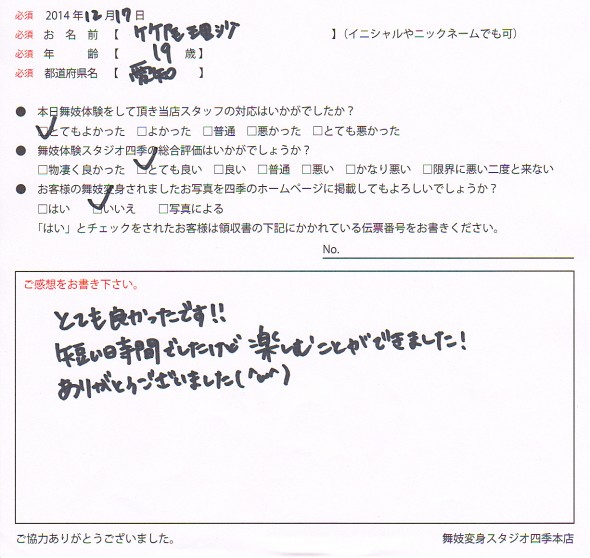 必須 2014年12月17日
必須 お名前【 】(イニシャルやニックネームでも可)
必須 年齢【 19 歳】
必須 都道府県名【 愛知 】
● 本日舞妓体験をして頂き当店スタッフの対応はいかがでしたか?
□とてもよかった □よかった □普通 □悪かった □とても悪かった
● 舞妓体験スタジオ四季の総合評価はいかがでしょうか?
□物凄く良かった □とても良い □良い □普通 □悪い □かなり悪い □限界に悪い二度と来ない
● お客様の舞妓変身されましたお写真を四季のホームページに掲載してもよろしいでしょうか?
□はい □いいえ □写真による
「はい」とチェックをされたお客様は領収書の下記にかかれている伝票番号をお書きください。
No.
ご感想をお書き下さい。
とても良かったです!!
短い時間でしたけど楽しむことができました!
ありがとうございました(^ω^)
ご協力ありがとうございました。 舞妓変身スタジオ四季本店